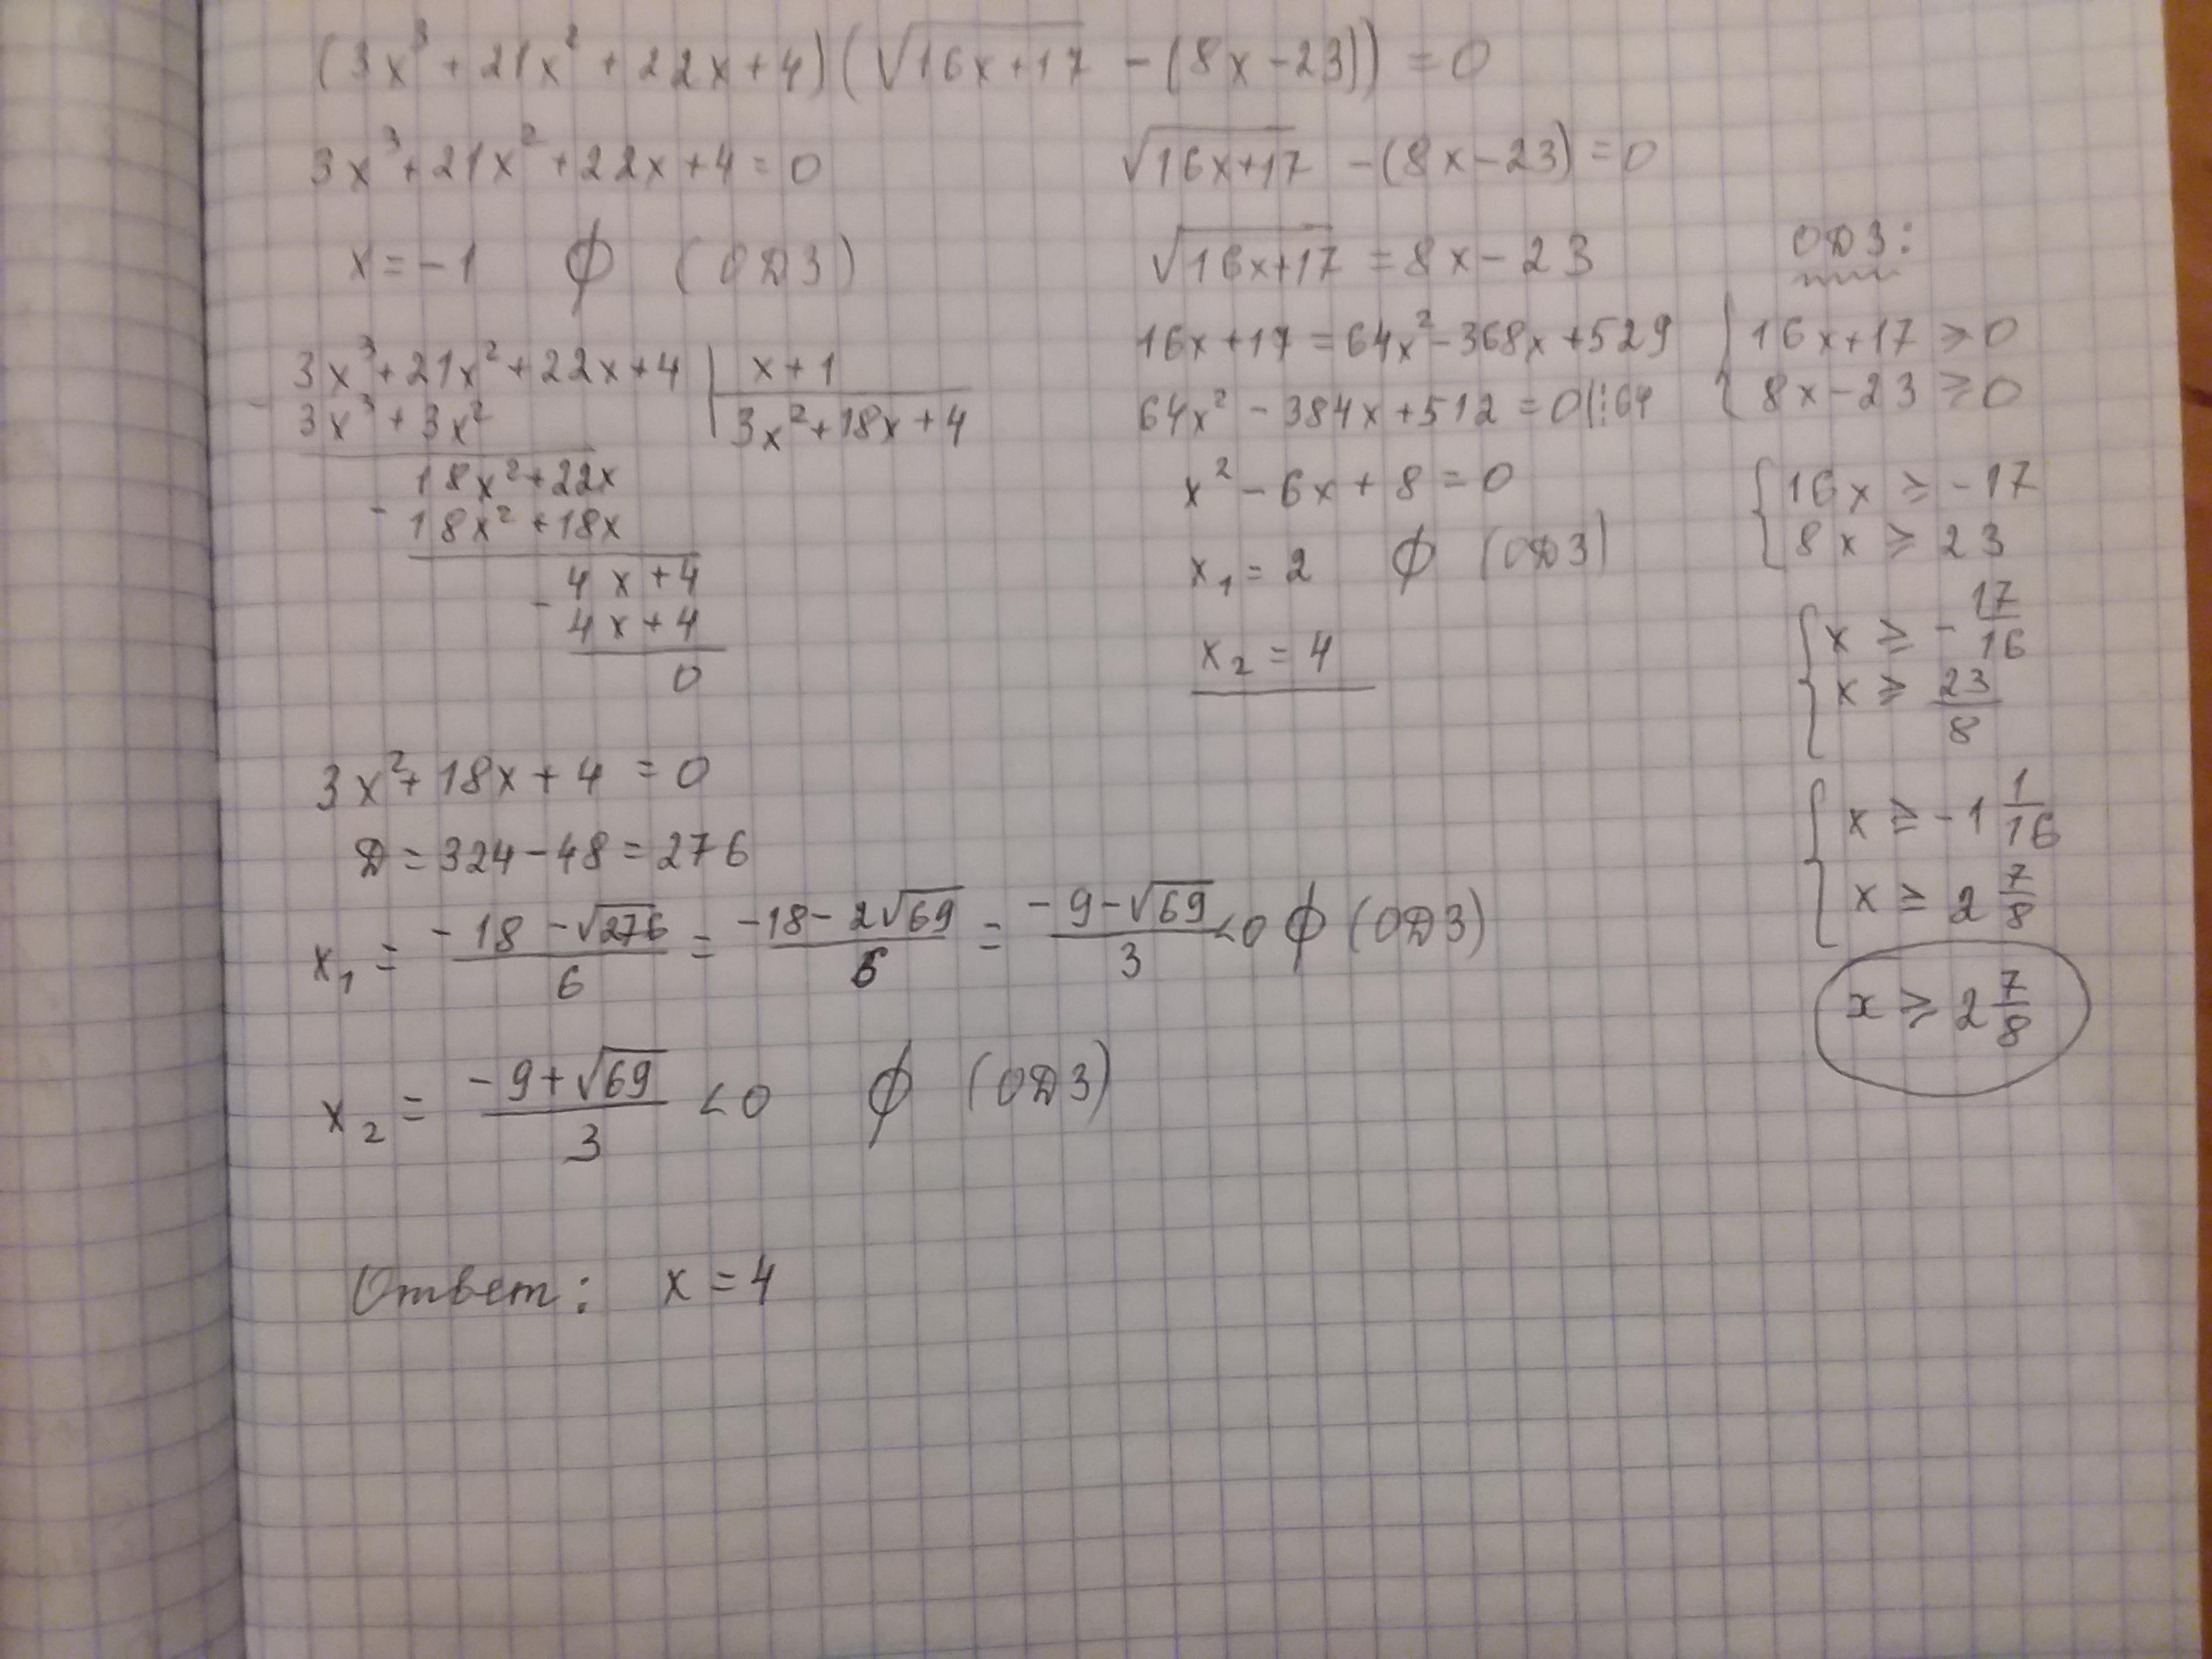 (3x³ + 21x² + 22x + 4)(√16x+17 − (8x − 23)) = 0
3x³ + 21x² + 22x + 4 = 0
x = −1 ∅ (ОДЗ)
3x³ + 21x² + 22x + 4 | x + 1
− 3x³ + 3x² | 3x² + 18x + 4
18x² + 22x
− 18x² + 18x
4x + 4
− 4x + 4
0
3x² + 18x + 4 = 0
D = 324 − 48 = 276
x₁ = (−18 − √276)/6 = (−18 − 2√69)/6 = (−9 − √69)/3 < 0 ∅ (ОДЗ)
x₂ = (−9 + √69)/3 < 0 ∅ (ОДЗ)
√16x+17 − (8x − 23) = 0
√16x+17 = 8x − 23
16x + 17 = 64x² − 368x + 529
64x² − 384x + 512 = 0 |:64
x² − 6x + 8 = 0
x₁ = 2 ∅ (ОДЗ)
x₂ = 4
ОДЗ:
{ 16x + 17 ≥ 0
8x − 23 ≥ 0
{ 16x ≥ −17
8x ≥ 23
{ x ≥ −17/16
x ≥ 23/8
{ x ≥ −1 1/16
x ≥ 2 7/8
x ≥ 2 7/8
Ответ: x = 4